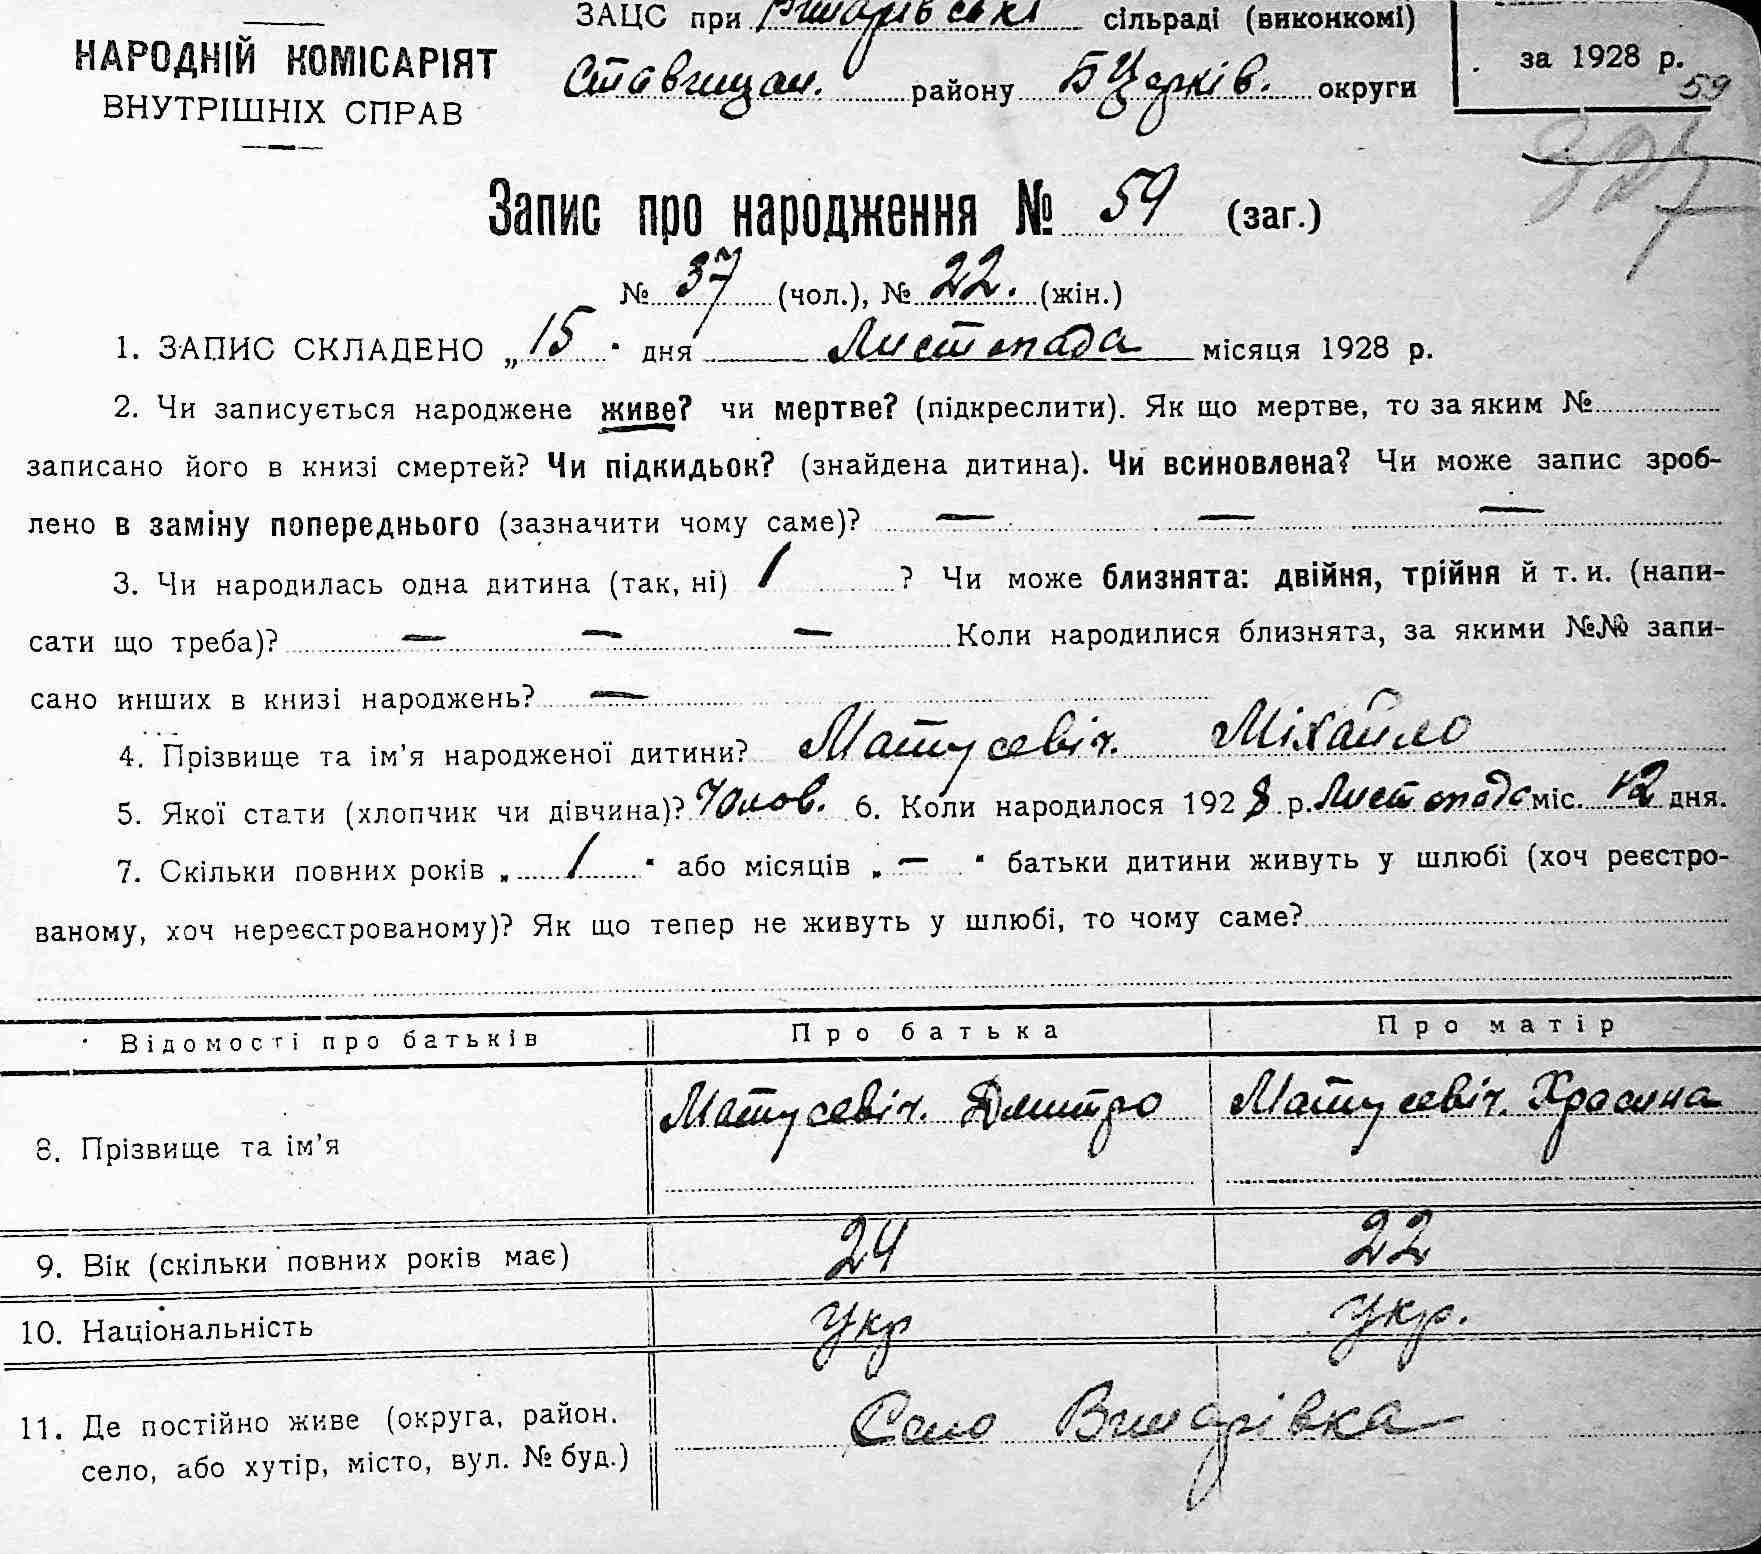 ЗАЦС при сільраді (виконкомі)
НАРОДНІЙ КОМІСАРІЯТ
ВНУТРІШНІХ СПРАВ
Ставищан. району БЦерків. округи
за 1928 р.
59
Запис про народження № 59 (заг.)
№ 37 (чол.), № 22. (жін.)
1. ЗАПИС СКЛАДЕНО „15" дня Листопада місяця 1928 р.
2. Чи записується народжене живе? чи мертве? (підкреслити). Як що мертве, то за яким №
записано його в книзі смертей? Чи підкидьок? (знайдена дитина). Чи всиновлена? Чи може запис зроб-
лено в заміну попереднього (зазначити чому саме)? — — —
3. Чи народилась одна дитина (так, ні) 1 ? Чи може близнята: двійня, трійня й т. и. (напи-
сати що треба)? — — — Коли народилися близнята, за якими №№ запи-
сано инших в книзі народжень? —
4. Прізвище та ім'я народженої дитини? Матусевіч. Міхайло
5. Якої стати (хлопчик чи дівчина)? Чолов. 6. Коли народилося 1928 р. Листопада міс. 12 дня.
7. Скільки повних років „ 1 " або місяців „ — " батьки дитини живуть у шлюбі (хоч реєстро-
ваному, хоч нереєстрованому)? Як що тепер не живуть у шлюбі, то чому саме?
Відомості про батьків Про батька Про матір
8. Прізвище та ім'я Матусевіч. Дмитро Матусевіч. Хросина
9. Вік (скільки повних років має) 24 22
10. Національність Укр Укр.
11. Де постійно живе (округа, район,
село, або хутір, місто, вул. № буд.) Село